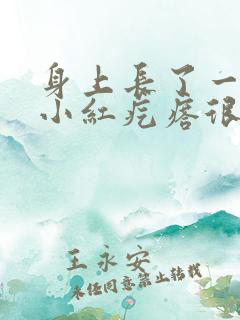 身上長了一
小紅疙瘩很
王永安
未经同意禁止转载